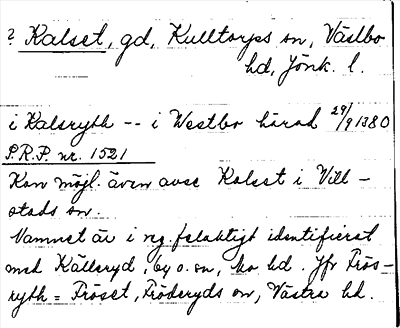 ? Kalset, gd, Kulltorps sn, Västbo
hd, Jönk. l.
i Kalsryth -- i Westbo härad 29/9 1380
P.R.P. nr. 1521
Kan möjl. även avse Kalset i Vill-
stads sn.
Namnet är i reg. felaktigt identifierat
med Källeryd, by o. sn, Mo hd. Jfr Frös-
ryth = Fröset, Fröderyds sn, Västra hd.